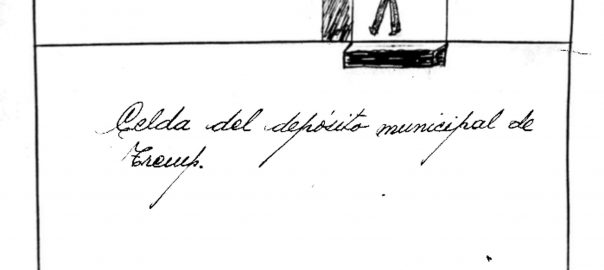 Celda del depósito municipal de
Tremp.